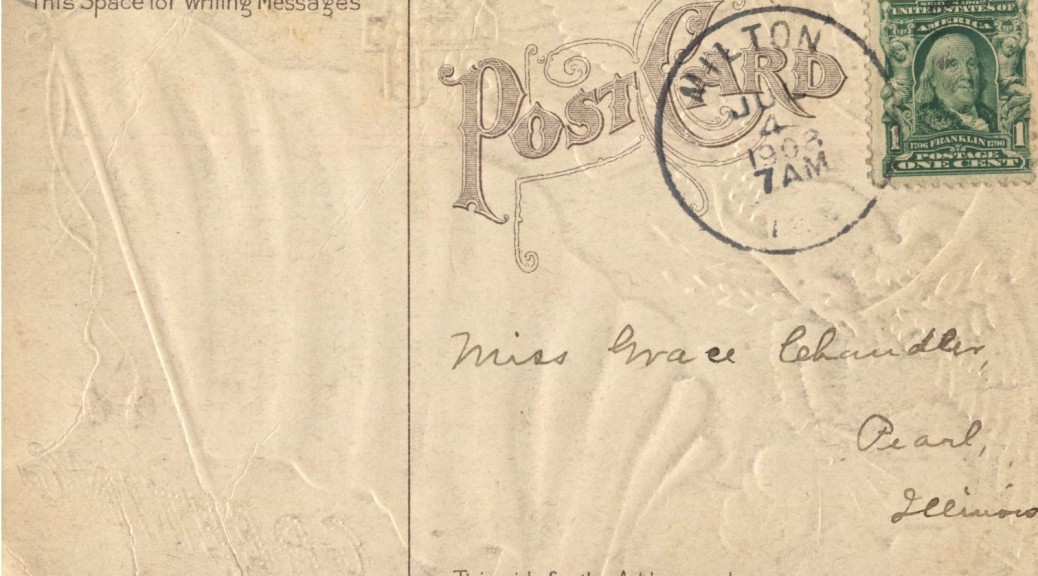 This Space for Writing Messages
POST CARD
MILTON
JUL
4
1908
7AM
UNITED STATES OF
AMERICA
1 1706 FRANKLIN 1790 1
POSTAGE
ONE CENT
Miss Grace Chandler,
Pearl,
Illinois